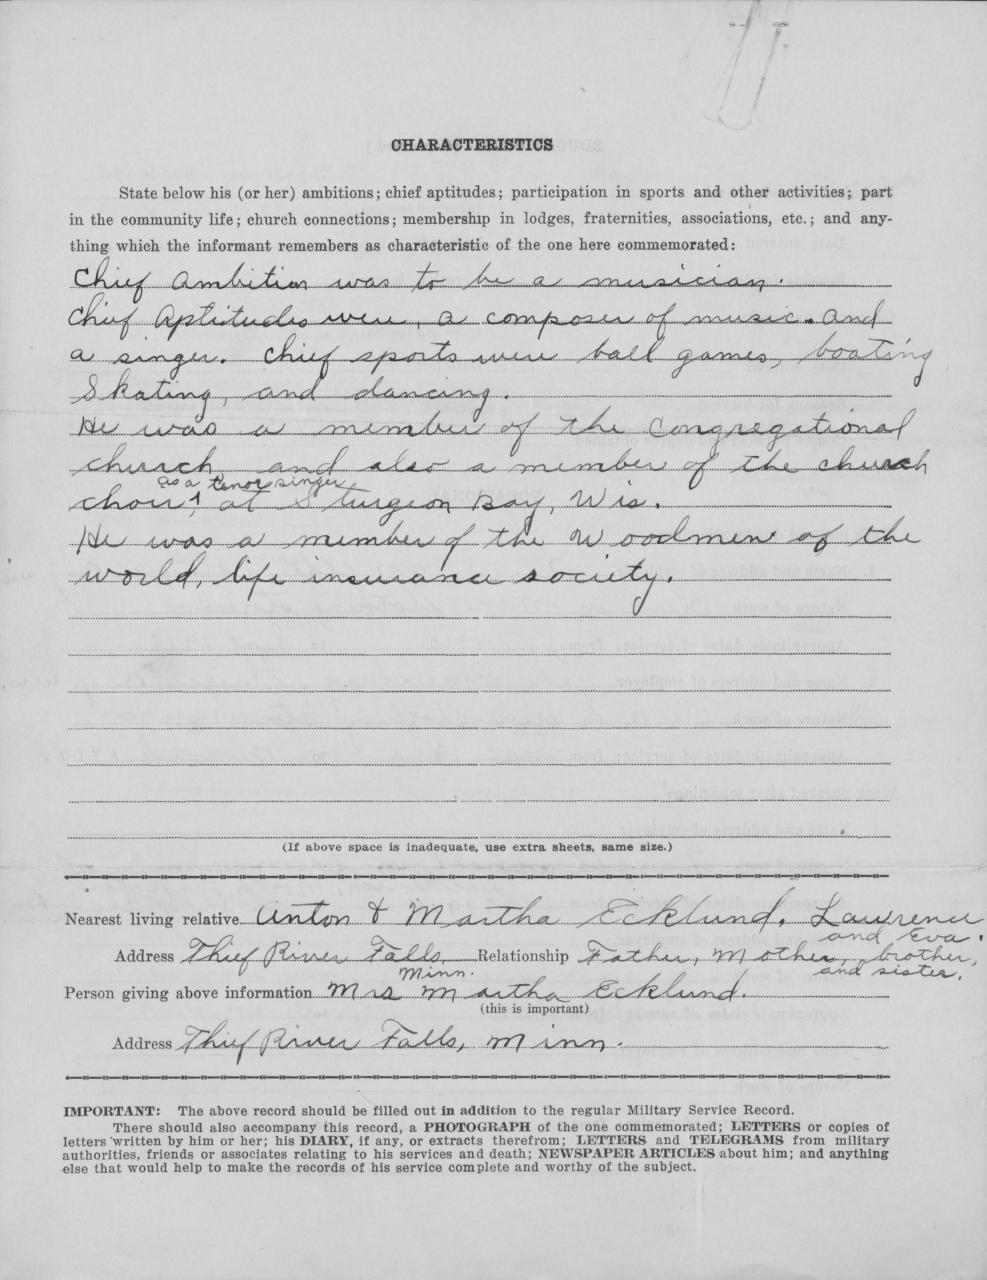 CHARACTERISTICS
State below his (or her) ambitions; chief aptitudes; participation in sports and other activities; part
in the community life; church connections; membership in lodges, fraternities, associations, etc.; and any-
thing which the informant remembers as characteristic of the one here commemorated:
Chief Ambition was to be a musician.
Chief Aptitudes were, a composer of music. and
a singer. Chief sports were ball games, boating
Skating, and dancing.
He was a member of the Congregational
church, and also a member of the church
as a tenor singer
choir, at Sturgeon Bay, Wis.
He was a member of the Woodmen of the
world, life insurance society.
(If above space is inadequate, use extra sheets, same size.)
Nearest living relative Anton & Martha Ecklund. Lawrence
and Eva.
Address Thief River Falls, Relationship Father, Mother, brother,
Minn. and sister.
Person giving above information Mrs Martha Ecklund.
(this is important)
Address Thief River Falls, Minn.
IMPORTANT: The above record should be filled out in addition to the regular Military Service Record.
There should also accompany this record, a PHOTOGRAPH of the one commemorated; LETTERS or copies of
letters written by him or her; his DIARY, if any, or extracts therefrom; LETTERS and TELEGRAMS from military
authorities, friends or associates relating to his services and death; NEWSPAPER ARTICLES about him; and anything
else that would help to make the records of his service complete and worthy of the subject.